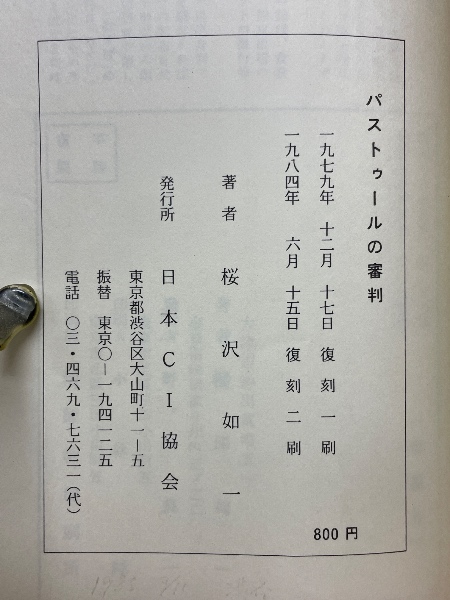 パストゥールの審判
一九七九年 十二月 十七日 復刻 一刷
一九八四年 六月 十五日 復刻 二刷
著者 桜沢如一
発行所 日本CI協会
東京都渋谷区大山町十一―五
振替 東京〇―一九四一二五
電話 〇三・四六九・七六三一(代)
800円